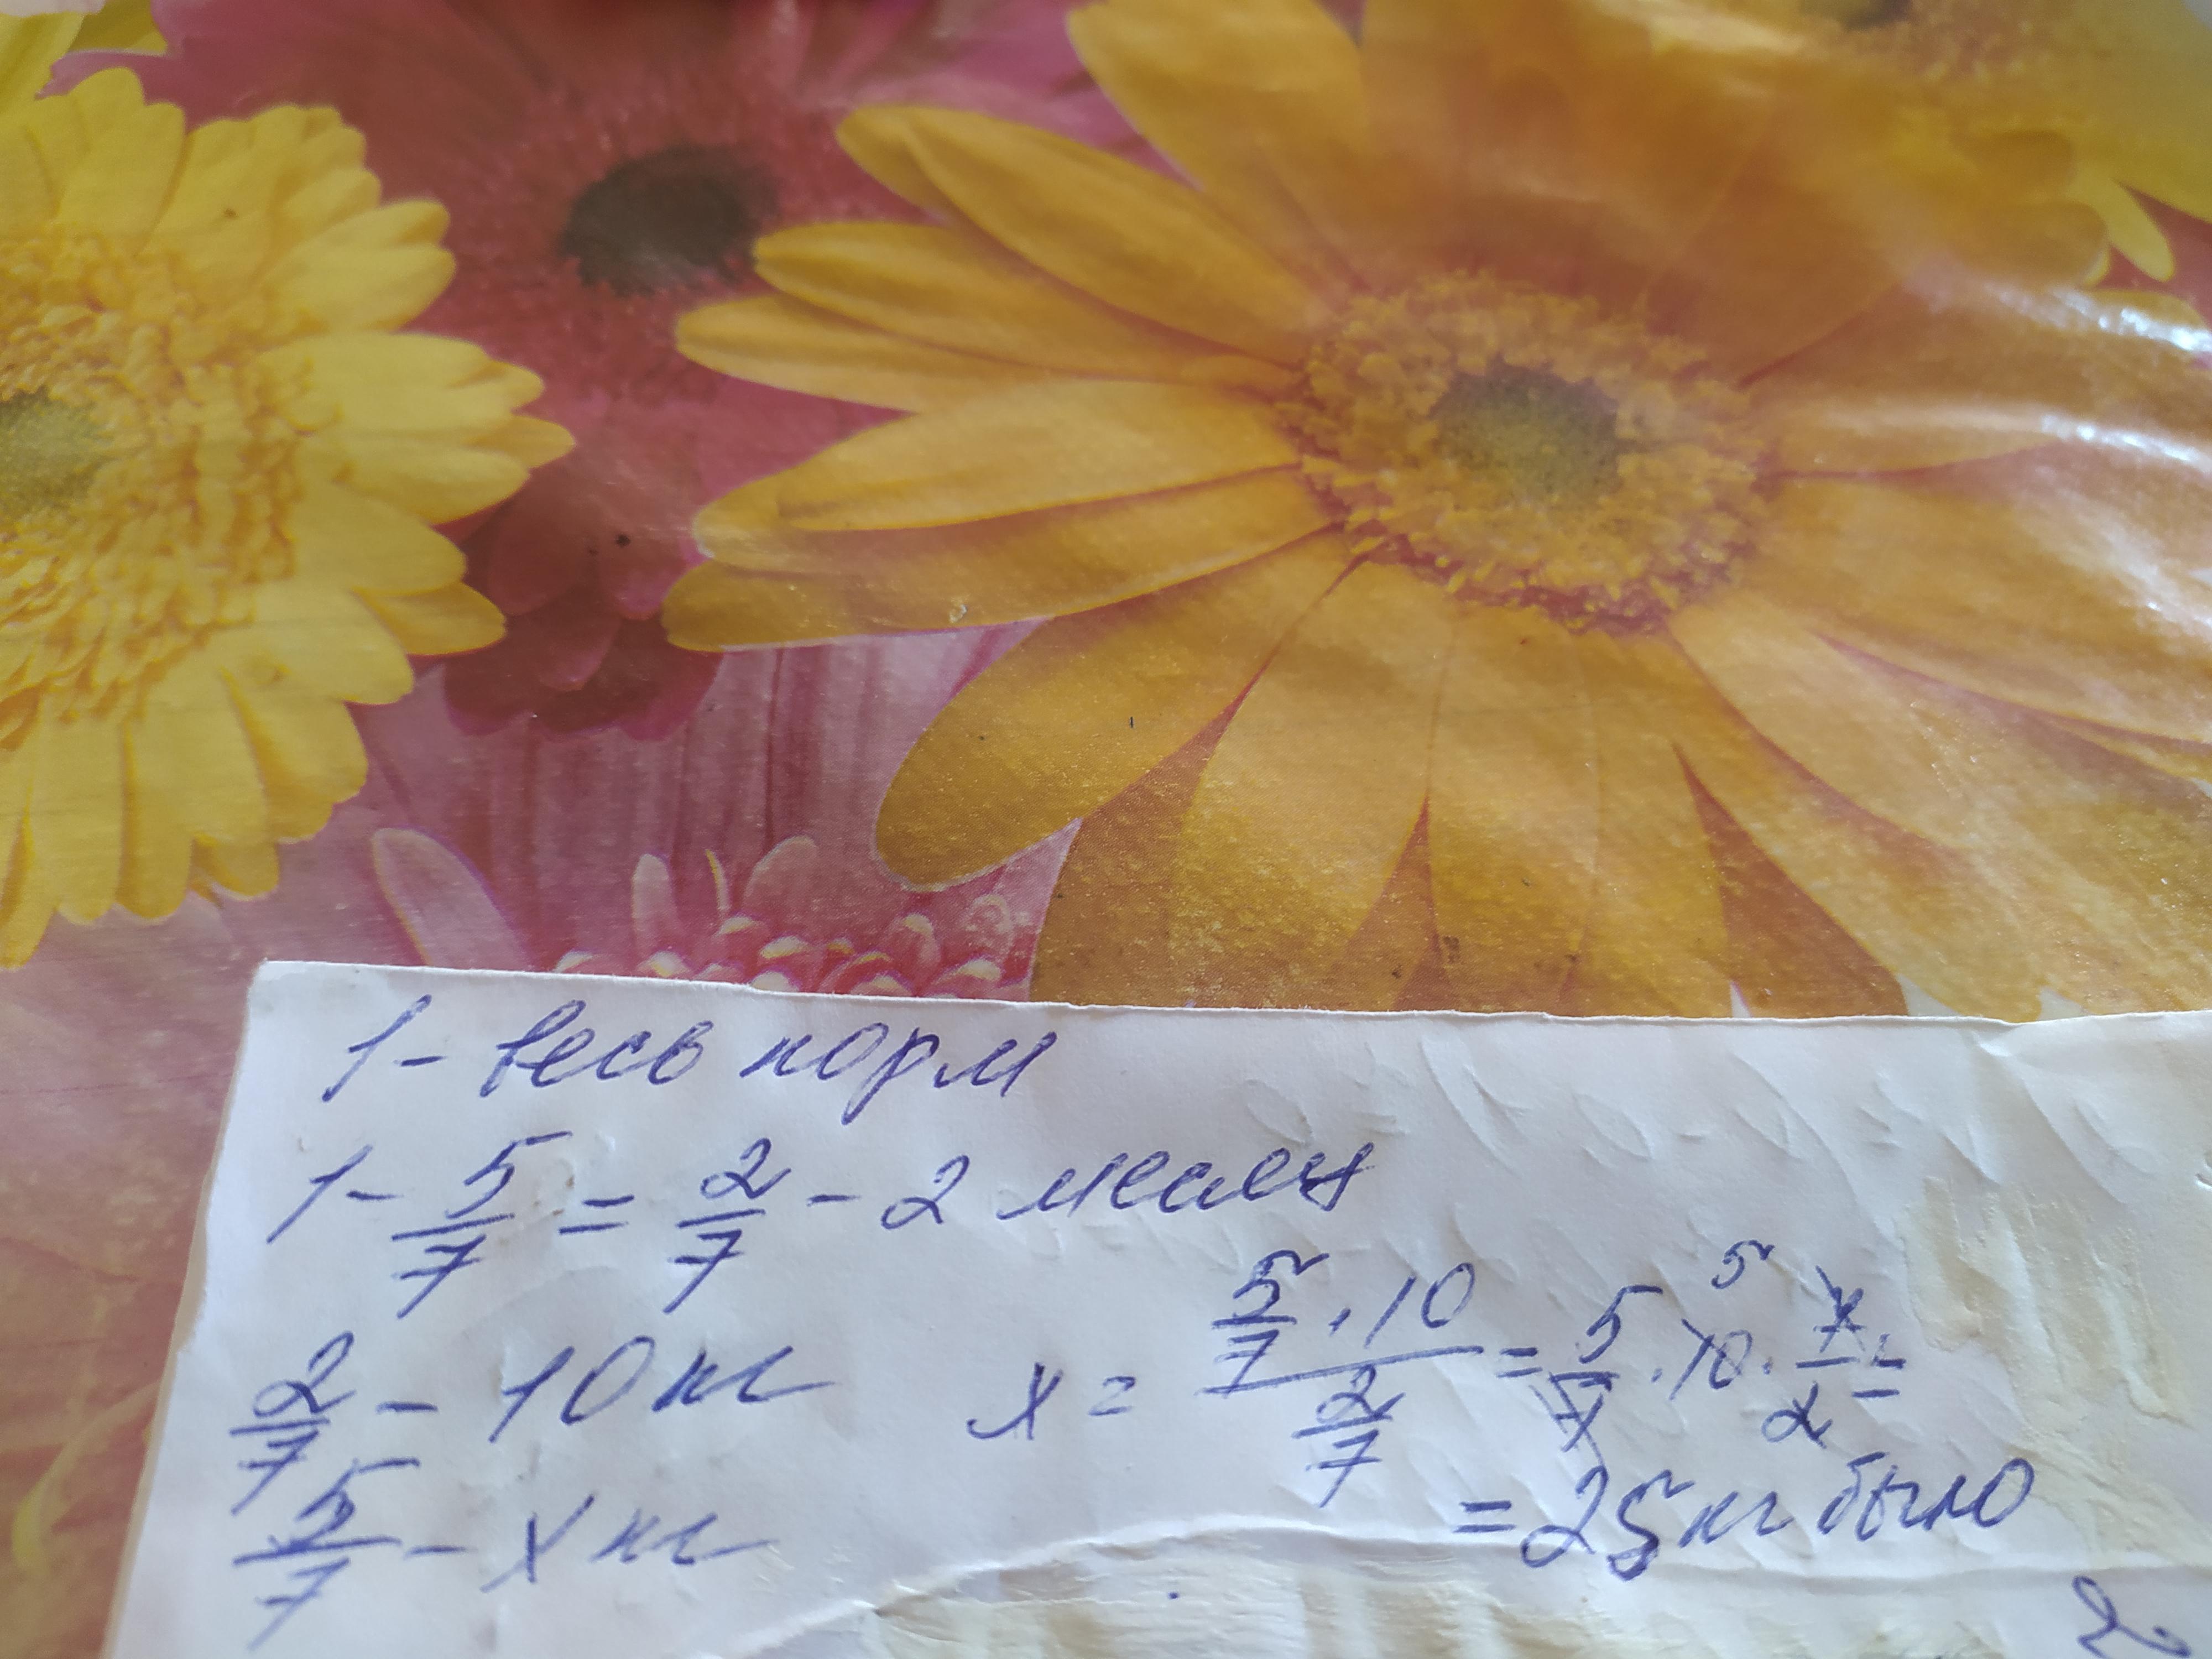 1 - весь корм
1 - 5/7 = 2/7 - 2 месяц
2/7 - 10 кг
5/7 - x кг
x = (5/7 · 10)/(2/7) = 5/7 · 10 5 · 7/2 =
= 25 кг было
2